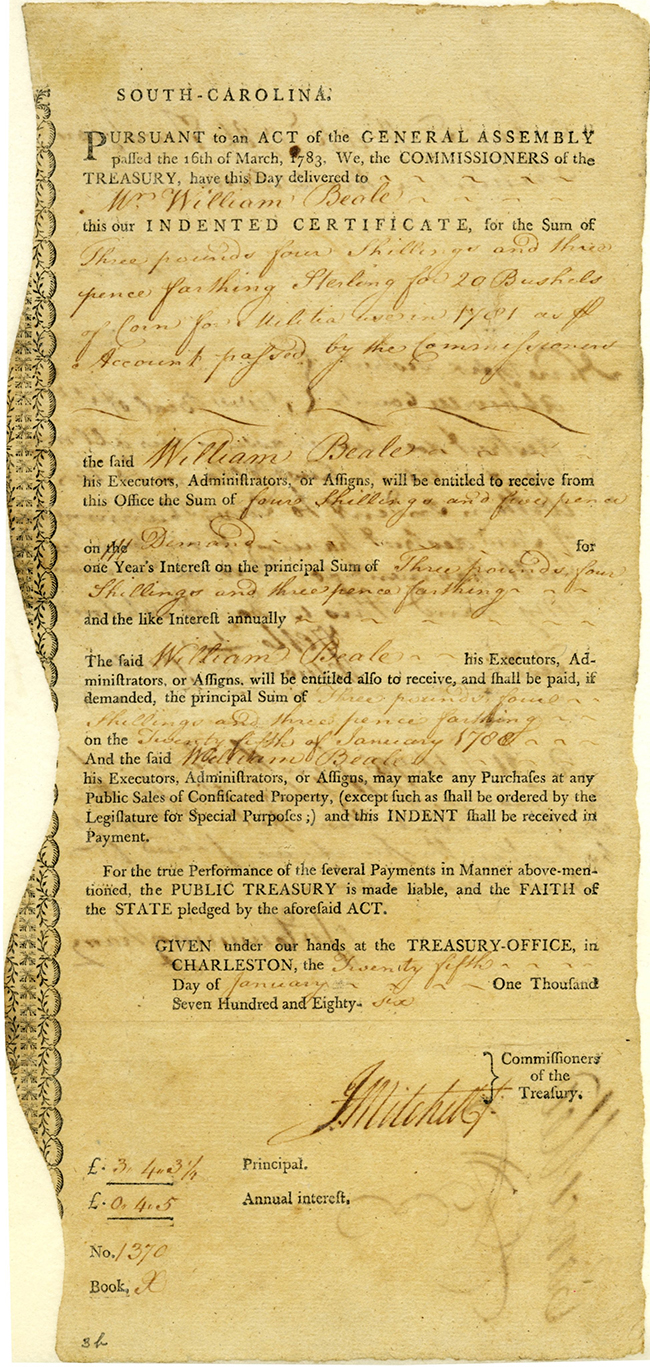 SOUTH-CAROLINA.
PURSUANT to an ACT of the GENERAL ASSEMBLY
paſſed the 16th of March, 1783. We, the COMMISSIONERS of the
TREASURY, have this Day delivered to
Mr. William Beale
this our INDENTED CERTIFICATE, for the Sum of
Three pounds four Shillings and three
pence farthing Sterling for 20 Bushels
of Corn for Militia use in 1781 as ℔
Account paſsed by the Commiſsioners
the said William Beale
his Executors, Adminiſtrators, or Aſſigns, will be entitled to receive from
this Office the Sum of four Shillings and five pence
on the Demand for
one Year's Intereſt on the principal Sum of Three pounds four
Shillings and three pence farthing
and the like Intereſt annually
The ſaid William Beale his Executors, Ad-
miniſtrators, or Aſſigns, will be entitled alſo to receive, and ſhall be paid, if
demanded, the principal Sum of Three pounds four
Shillings and three pence farthing
on the Twenty fifth of January 1788
And the ſaid William Beale
his Executors, Adminiſtrators, or Aſſigns, may make any Purchaſes at any
Public Sales of Confiſcated Property, (except ſuch as ſhall be ordered by the
Legiſlature for Special Purpoſes;) and this INDENT ſhall be received in
Payment.
For the true Performance of the ſeveral Payments in Manner above-men-
tioned, the PUBLIC TREASURY is made liable, and the FAITH of
the STATE pledged by the aforeſaid ACT.
GIVEN under our hands at the TREASURY-OFFICE, in
CHARLESTON, the Twenty fifth
Day of January One Thouſand
Seven Hundred and Eighty- six
Commiſſioners
of the
Treaſury.
J. Mitchell
£. 3..4..3¼ Principal.
£. 0..4..5 Annual intereſt.
No. 1370
Book, X
3h